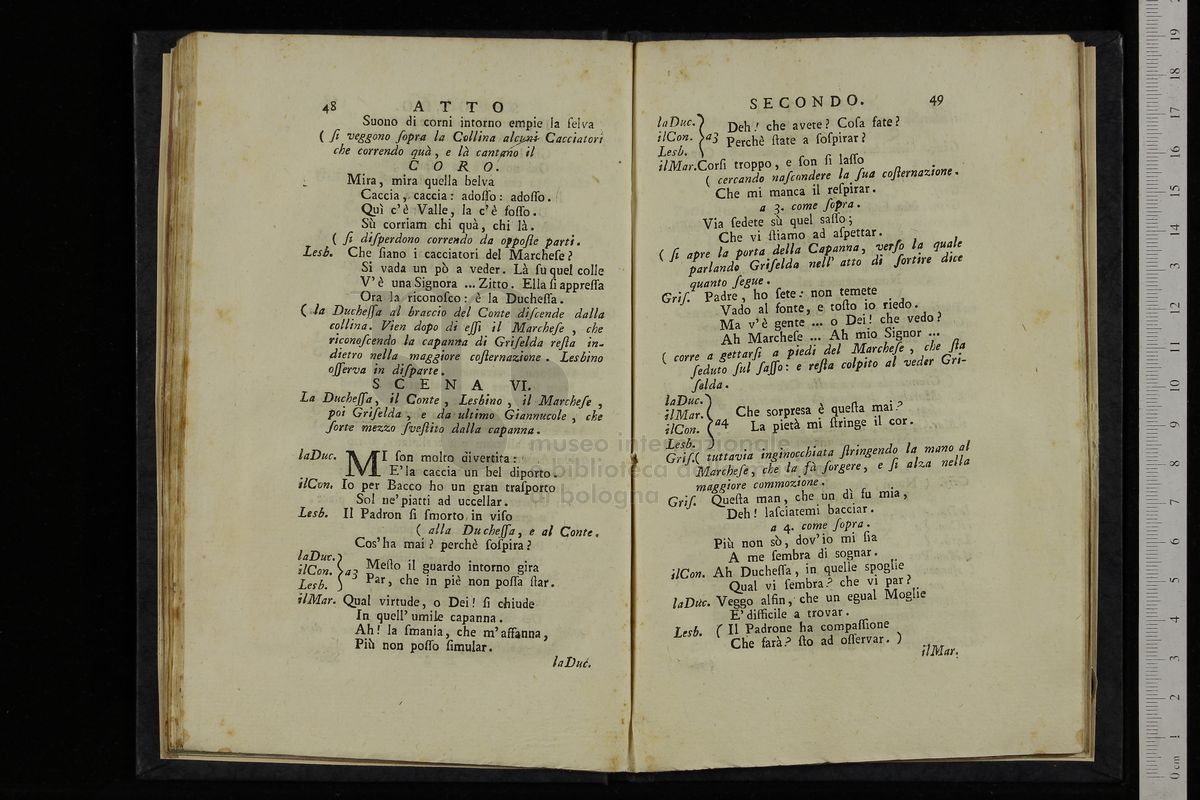 48 ATTO
Suono di corni intorno empie la ſelva
( ſi veggono ſopra la Collina alcuni Cacciatori
che correndo quà, e là cantano il
CORO.
Mira, mira quella belva
Caccia, caccia: adoſſo: adoſſo.
Quì c'è Valle, la c'è foſſo.
Sù corriam chi quà, chi là.
( ſi diſperdono correndo da oppoſte parti.
Lesb. Che ſiano i cacciatori del Marcheſe?
Si vada un pò a veder. Là ſu quel colle
V'è una Signora ... Zitto. Ella ſi appreſſa
Ora la riconoſco: è la Ducheſſa.
( la Ducheſſa al braccio del Conte diſcende dalla
collina. Vien dopo di eſſi il Marcheſe, che
riconoſcendo la capanna di Griſelda reſta in-
dietro nella maggiore coſternazione. Lesbino
oſſerva in diſparte.
SCENA VI.
La Ducheſſa, il Conte, Lesbino, il Marcheſe,
poi Griſelda, e da ultimo Giannucole, che
ſorte mezzo ſveſtito dalla capanna.
laDuc. MI ſon molto divertita:
E'la caccia un bel diporto.
ilCon. Io per Bacco ho un gran traſporto
Sol ne'piatti ad uccellar.
Lesb. Il Padron ſi ſmorto in viſo
( alla Ducheſſa, e al Conte.
Cos'ha mai? perchè ſoſpira?
laDuc.
ilCon. } a3 Meſto il guardo intorno gira
Lesb. Par, che in piè non poſſa ſtar.
ilMar. Qual virtude, o Dei! ſi chiude
In quell'umile capanna.
Ah! la ſmania, che m'affanna,
Più non poſſo ſimular.
laDuc.
SECONDO. 49
laDuc. Deh! che avete? Coſa fate?
ilCon. } a3 Perchè ſtate a ſoſpirar?
Lesb.
ilMar. Corſi troppo, e ſon ſi laſſo
( cercando naſcondere la ſua coſternazione.
Che mi manca il reſpirar.
a 3. come ſopra.
Via ſedete sù quel ſaſſo;
Che vi ſtiamo ad aſpettar.
( ſi apre la porta della Capanna, verſo la quale
parlando Griſelda nell' atto di ſortire dice
quanto ſegue.
Griſ. Padre, ho ſete: non temete
Vado al fonte, e toſto io riedo.
Ma v'è gente ... o Dei! che vedo?
Ah Marcheſe ... Ah mio Signor ...
( corre a gettarſi a piedi del Marcheſe, che ſta
ſeduto ſul ſaſſo: e reſta colpito al veder Gri-
ſelda.
laDuc.
ilMar. Che sorpresa è queſta mai?
ilCon. } a4 La pietà mi ſtringe il cor.
Lesb.
Griſ.( tuttavia inginocchiata ſtringendo la mano al
Marcheſe, che la fà ſorgere, e ſi alza nella
maggiore commozione.
Griſ. Queſta man, che un dì fu mia,
Deh! laſciatemi bacciar.
a 4. come ſopra.
Più non sò, dov'io mi ſia
A me ſembra di sognar.
ilCon. Ah Ducheſſa, in quelle spoglie
Qual vi ſembra? che vi par?
laDuc. Veggo alfin, che un egual Moglie
E' difficile a trovar.
Lesb. ( Il Padrone ha compaſſione
Che farà? ſto ad oſſervar. )
ilMar.
museo internazionale
e biblioteca della musica
di bologna
0 cm 1 2 3 4 5 6 7 8 9 10 11 12 13 14 15 16 17 18 19